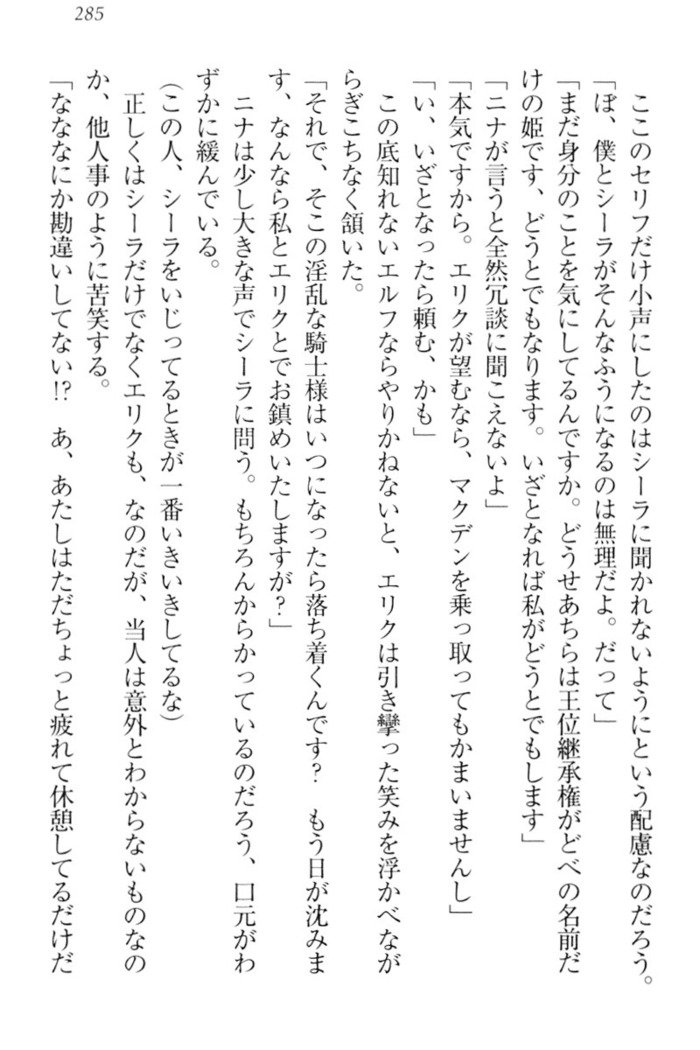 285
ここのセリフだけ小声にしたのはシーラに聞かれないようにという配慮なのだろう。
「ぼ、僕とシーラがそんなふうになるのは無理だよ。だって」
「まだ身分のことを気にしてるんですか。どうせあちらは王位継承権がどべの名前だ
けの姫です、どうとでもなります。いざとなれば私がどうとでもします」
「ニナが言うと全然冗談に聞こえないよ」
「本気ですから。エリクが望むなら、マクデンを乗っ取ってもかまいませんし」
「い、いざとなったら頼む、かも」
この底知れないエルフならやりかねないと、エリクは引き攣った笑みを浮かべなが
らぎこちなく頷いた。
「それで、そこの淫乱な騎士様はいつになったら落ち着くんです? もう日が沈みま
す、なんなら私とエリクとでお鎮めいたしますが?」
ニナは少し大きな声でシーラに問う。もちろんからかっているのだろう、口元がわ
ずかに緩んでいる。
(この人、シーラをいじってるときが一番いきいきしてるな)
正しくはシーラだけでなくエリクも、なのだが、当人は意外とわからないものなの
か、他人事のように苦笑する。
「なななにか勘違いしてない!? あ、あたしはただちょっと疲れて休憩してるだけだ